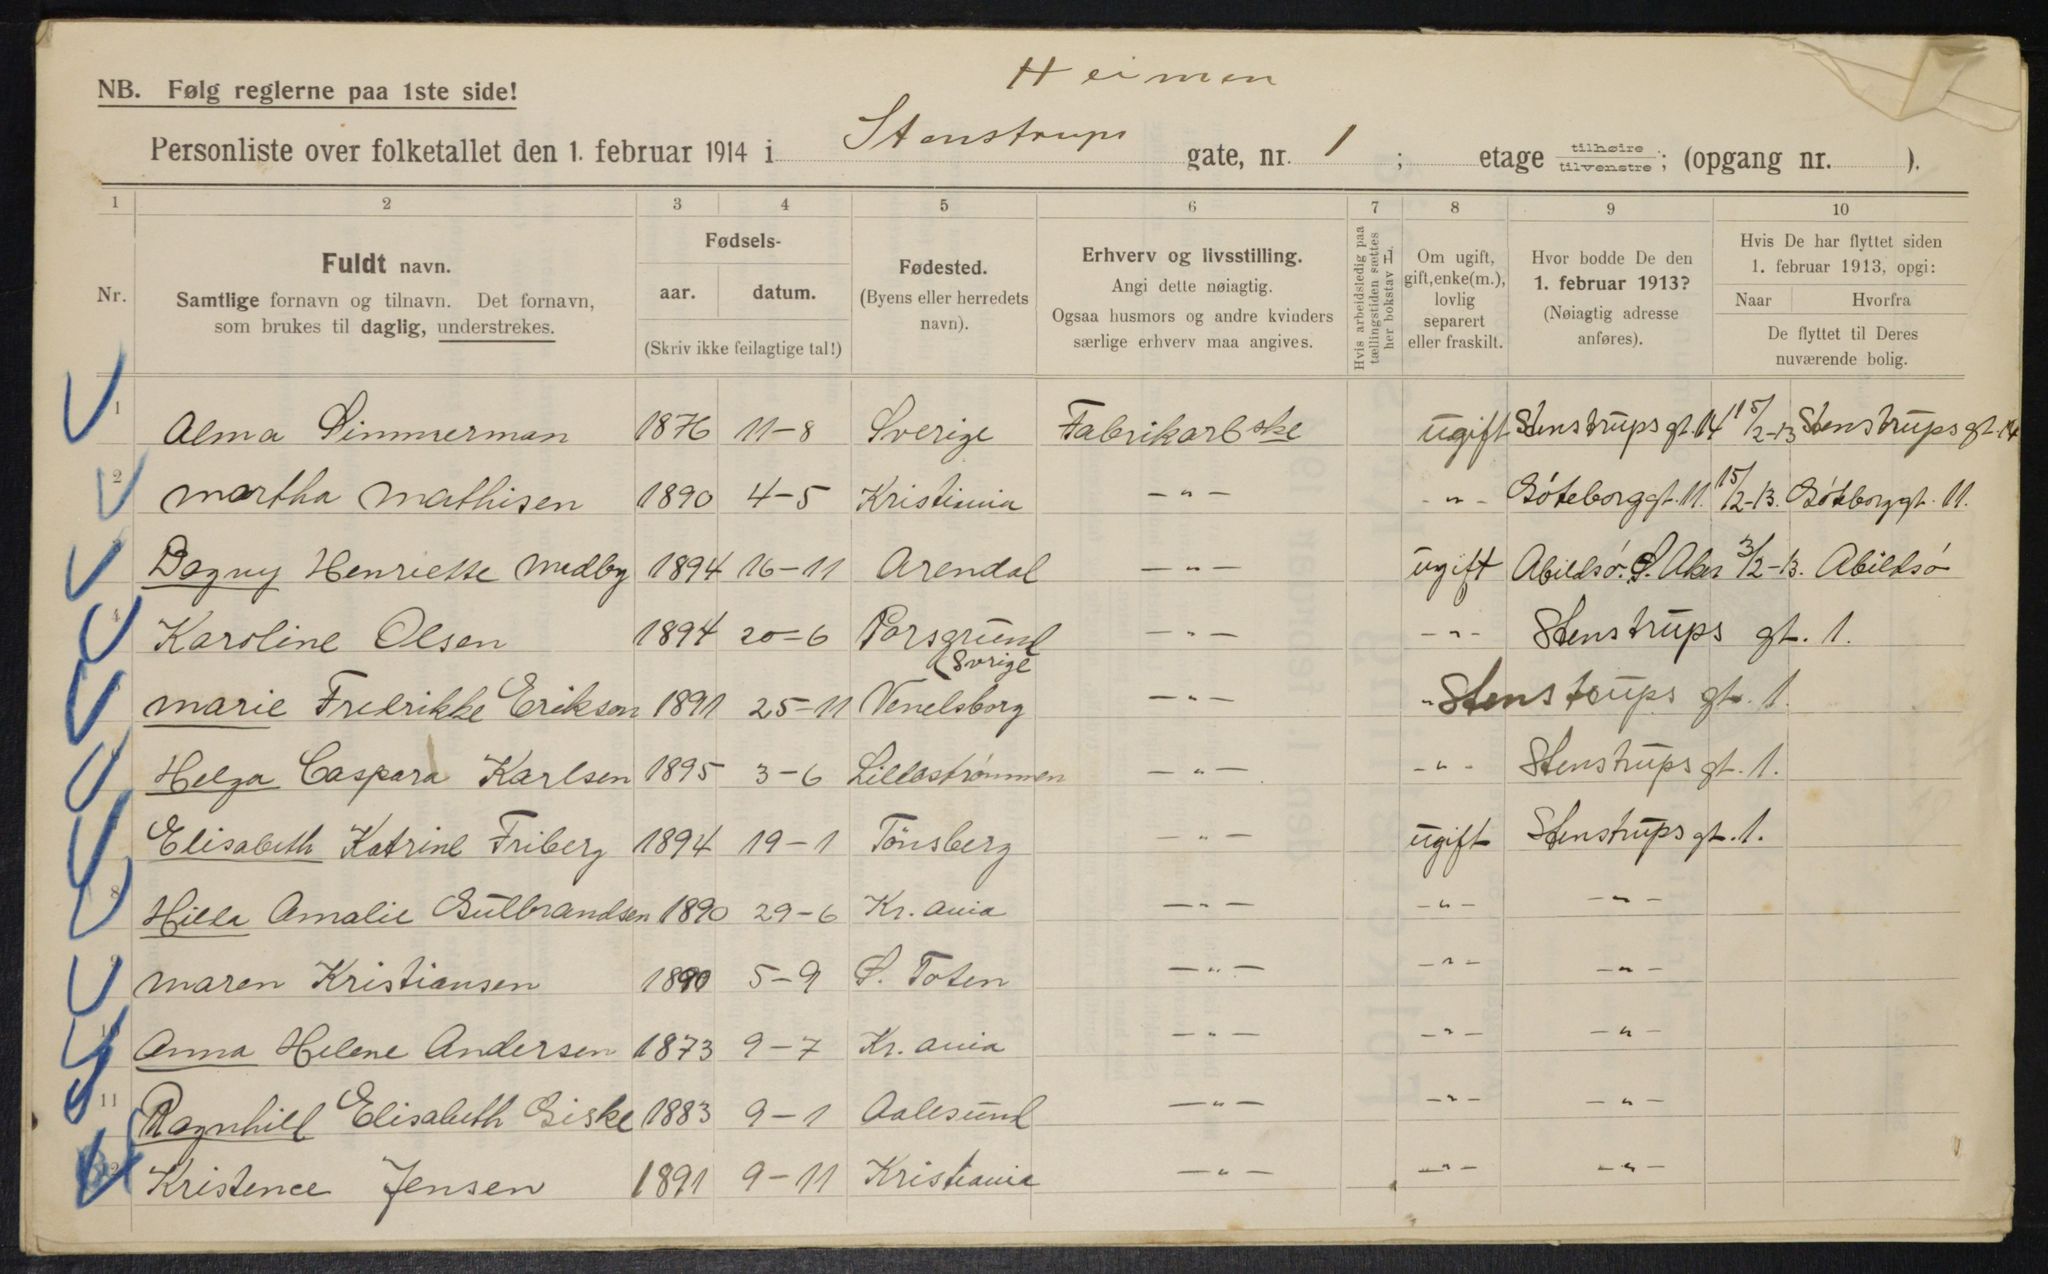 Heimen
NB. Følg reglerne paa 1ste side!
Personliste over folketallet den 1. februar 1914 i Stenstrups gate, nr. 1 ; etage tilhøire/tilvenstre; (opgang nr. ).
1 2 3 4 5 6 7 8 9 10
Nr.
Fuldt navn.
Samtlige fornavn og tilnavn. Det fornavn,
som brukes til daglig, understrekes.
Fødsels-
aar. datum.
(Skriv ikke feilagtige tal!)
Fødested.
(Byens eller herredets
navn).
Erhverv og livsstilling.
Angi dette nøiagtig.
Ogsaa husmors og andre kvinders
særlige erhverv maa angives.
Hvis arbeidsledig paa
tællingstiden sættes
her bokstav L.
Om ugift,
gift, enke(m.),
lovlig
separert
eller fraskilt.
Hvor bodde De den
1. februar 1913?
(Nøiagtig adresse
anføres).
Hvis De har flyttet siden
1. februar 1913, opgi:
Naar Hvorfra
De flyttet til Deres
nuværende bolig.
1 Alma Simmerman 1876 11-8 Sverige Fabrikarbske ugift Stenstrups gt. 14 15/2-13 Stenstrups gt. 14
2 Martha Mathisen 1890 4-5 Kristiania -"- -"- Göteborggt. 11. 15/2-13. Göteborggt. 11.
3 Dagny Henriette Medby 1894 16-11 Arendal -"- ugift Abildsö. Ö. Aker 3/2-13. Abildsö
4 Karoline Olsen 1894 20=6 Porsgrund -"- -"- Stenstrups gt. 1.
(Svrige
Marie Fredrikke Erikson 1891 25-11 Venelsborg -"- " Stenstrups gt. 1.
Helga Caspara Karlsen 1895 3-6 Lillestrømmen -"- -"- Stenstrups gt. 1.
Elisabeth Katrine Friberg 1894 19-1 Tönsberg -"- ugift Stenstrups gt. 1.
8 Hilda Amalie Gulbrandsen 1890 29-6 Kr. ania -"- -"- -"-
9 Maren Kristiansen 1890 5-9 Ø. Toten -"- -"- -"-
10 Anna Helene Andersen 1873 9-7 Kr. ania -"- -"- -"-
11 Ragnhild Elisabeth Giske 1883 9-1 Aalesund -"- -"- -"-
12 Kristence Jensen 1891 9-11 Kristiania -"- -"- -"-